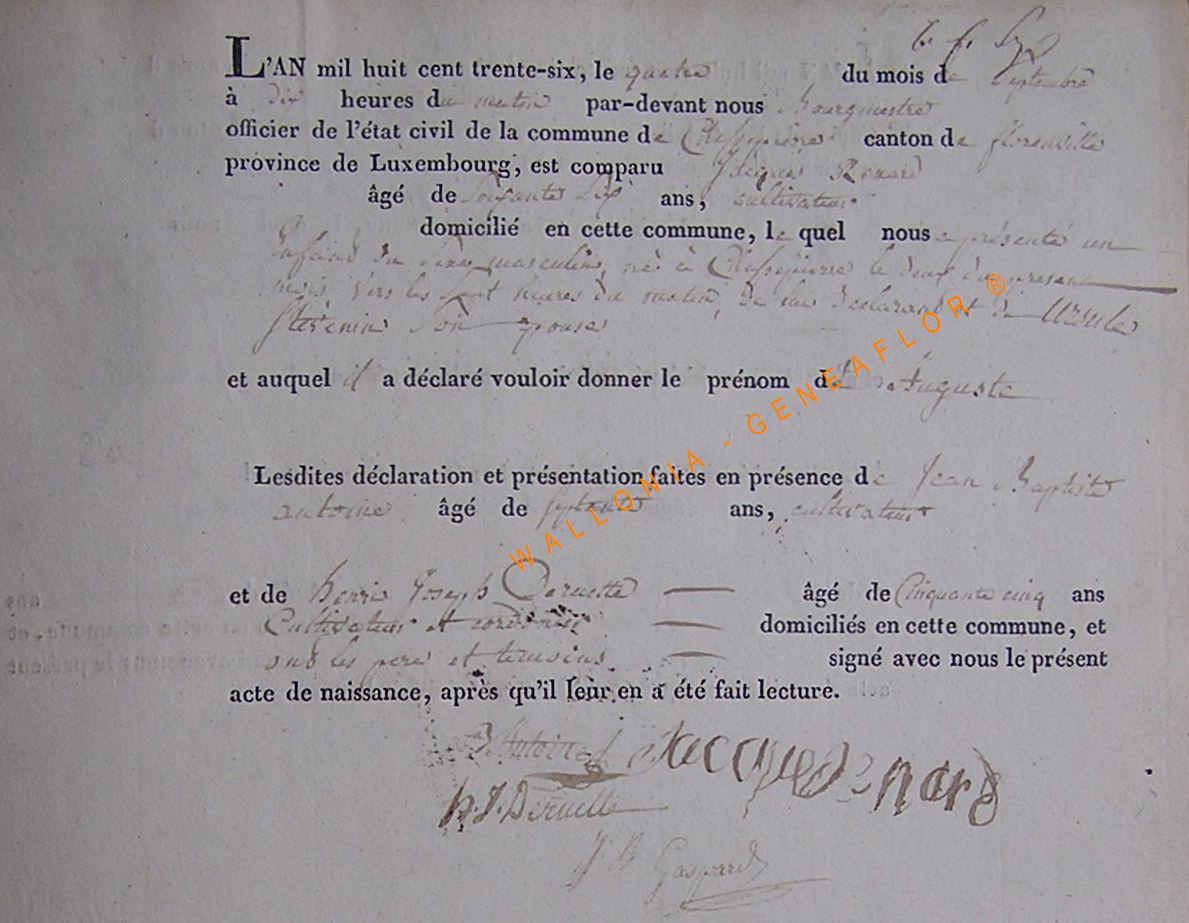 L'AN mil huit cent trente-six, le quatre du mois de Septembre
à dix heures du matin par-devant nous Bourgmestre
officier de l'état civil de la commune de Chassepierre canton de florenville
province de Luxembourg, est comparu Jacques Renard
âgé de soixante six ans, cultivateur
domicilié en cette commune, le quel nous a présenté un
Enfant du sexe masculin, né à Chassepierre le deux du présent
mois vers les sept heures du matin, de lui déclarant et de Ursule
son épouse
et auquel il a déclaré vouloir donner le prénom de Auguste
Lesdites déclaration et présentation faites en présence de Jean Baptiste
antoine âgé de septante ans, cultivateur
et de henri Joseph Deruette âgé de Cinquante cinq ans
Cultivateur et domiciliés en cette commune, et
ont les père et temoins signé avec nous le présent
acte de naissance, après qu'il leur en a été fait lecture.
Antoine Jacque Renard
h. J. Deruette
J B Gaspard
WALLONIA - GENEAFLOR ®